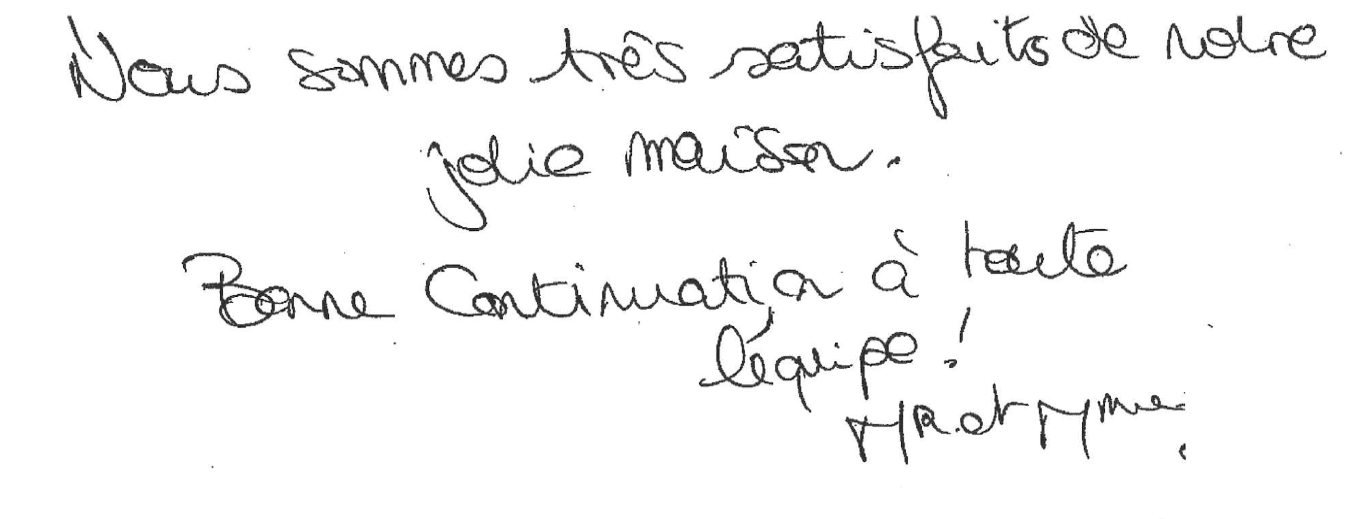 Nous sommes très satisfaits de notre
jolie maison.
Bonne Continuation à toute
l'équipe !
MR et Mme